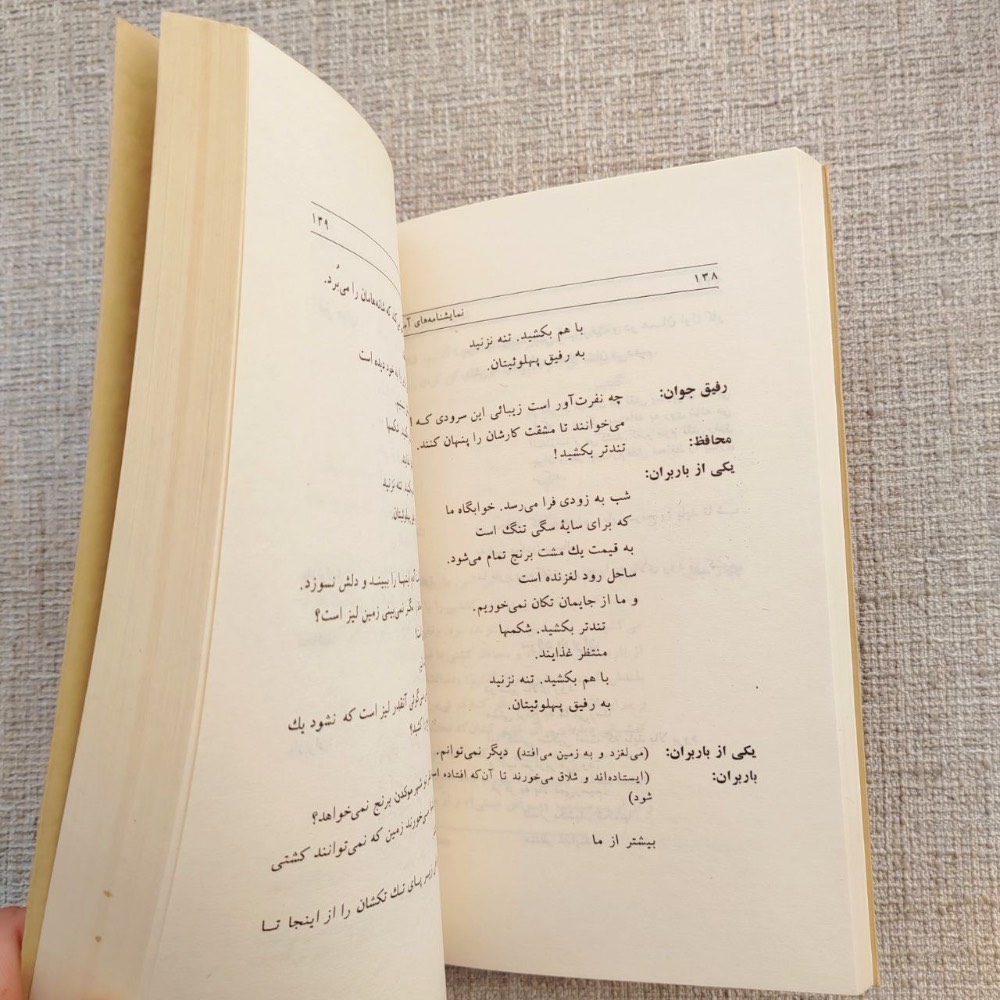 ۱۳۸
نمایشنامه‌های
با هم بکشید. تنه نزنید
به رفیق پهلوئیتان.
رفیق جوان: چه نفرت‌آور است زیبائی این سرودی که
می‌خوانند تا مشقت کارشان را پنهان کنند.
محافظ: تندتر بکشید!
یکی از باربران:
شب به زودی فرا می‌رسد. خوابگاه ما
که برای سایهٔ سگی تنگ است
به قیمت یك مشت برنج تمام می‌شود.
ساحل رود لغزنده است
و ما از جایمان تکان نمی‌خوریم.
تندتر بکشید. شکمها
منتظر غذایند.
با هم بکشید. تنه نزنید
به رفیق پهلوئیتان.
یکی از باربران: (می‌لغزد و به زمین می‌افتد) دیگر نمی‌توانم.
باربران: (ایستاده‌اند و شلاق می‌خورند تا آن‌که افتاده
شود)
بیشتر از ما
۱۳۹
که شانه‌هامان را می‌بُرد.
خود دیده است
شکمها
تنه نزنید
اینها را ببیند و دلش نسوزد.
نمی‌بینی زمین لیز است؟
آنقدر لیز است که نشود یك
برنج نمی‌خواهد؟
زمین که نمی‌توانند کشتی
پای تك تکشان را از اینجا تا